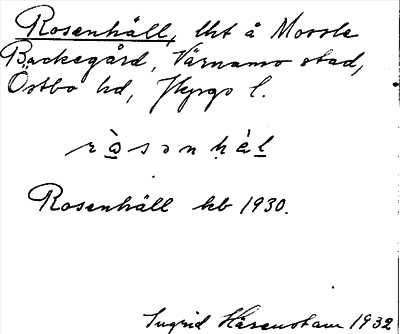 Rosenhäll, lht å Mossle
Backegård, Värnamo stad,
Östbo hd, Jkpgs l.
ròsənhàl
Rosenhäll kb 1930.
Ingrid Härenstam 1932